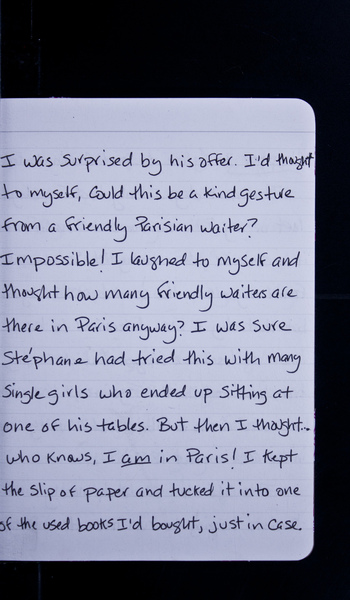 I was surprised by his offer. I'd thought
to myself, Could this be a kind gesture
from a friendly Parisian waiter?
Impossible! I laughed to myself and
thought how many friendly waiters are
there in Paris anyway? I was sure
Stéphane had tried this with many
single girls who ended up sitting at
one of his tables. But then I thought...
who knows, I am in Paris! I kept
the slip of paper and tucked it into one
of the used books I'd bought, just in case.